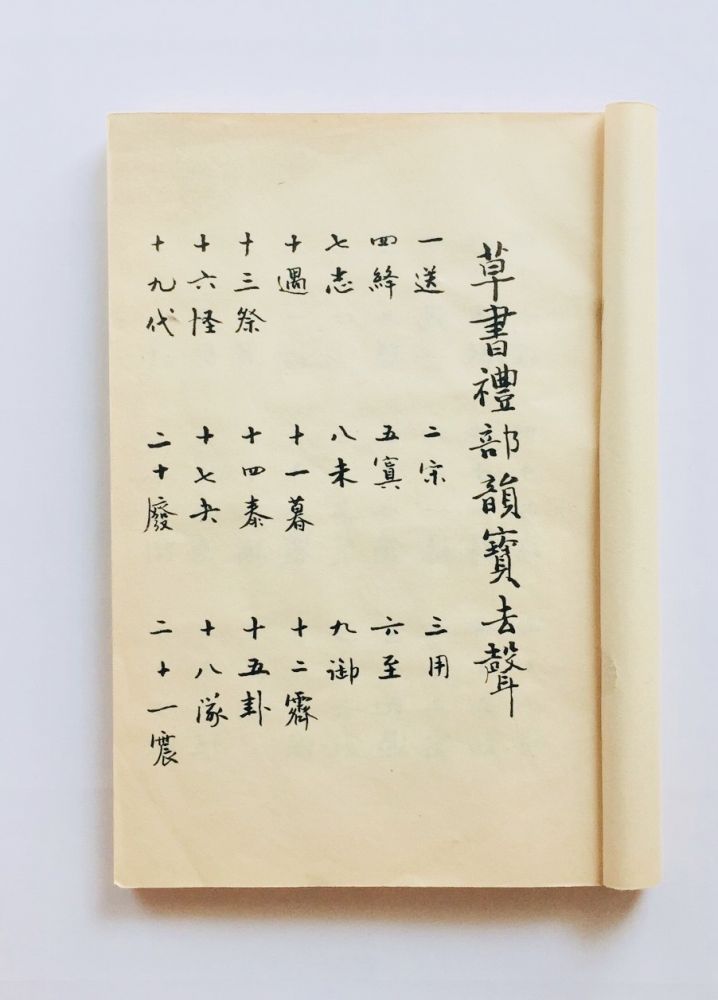 草書禮部韻寶去聲
一送 二宋 三用
四絳 五寘 六至
七志 八未 九御
十遇 十一暮 十二霽
十三祭 十四泰 十五卦
十六怪 十七夬 十八隊
十九代 二十廢 二十一震